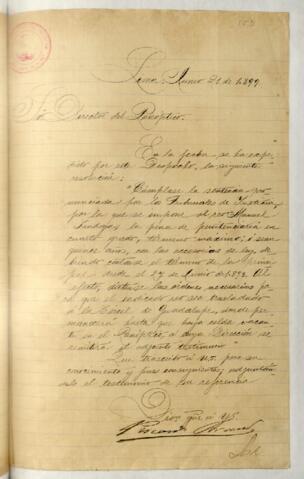 Lima, Junio 21 de 1899.
Sr. Director del Panóptico.
En la fecha se ha expe-
dido por este Despacho, la siguiente
resolución:
"Cúmplase la sentencia pro-
nunciada por los Tribunales de Justicia,
por la que se impone al reo Manuel
la pena de penitenciaría en
cuarto grado, término máximo, ó sean
quince años, con las accesorias de ley, de-
biendo contarse el término de la princi-
pal desde el 27 de Junio de 1892. Al
efecto, díctese las órdenes necesarias pa-
ra que el indicado reo sea trasladado
á la Cárcel de Guadalupe, donde per-
manecerá hasta que haya celda vacan-
te en el Panóptico, á cuya Dirección se
remitirá el adjunto testimonio."
Que trascribo á US. para su
conocimiento y fines consiguientes, adjuntán-
dole el testimonio de su referencia.
Dios gue. á US.
Ricardo